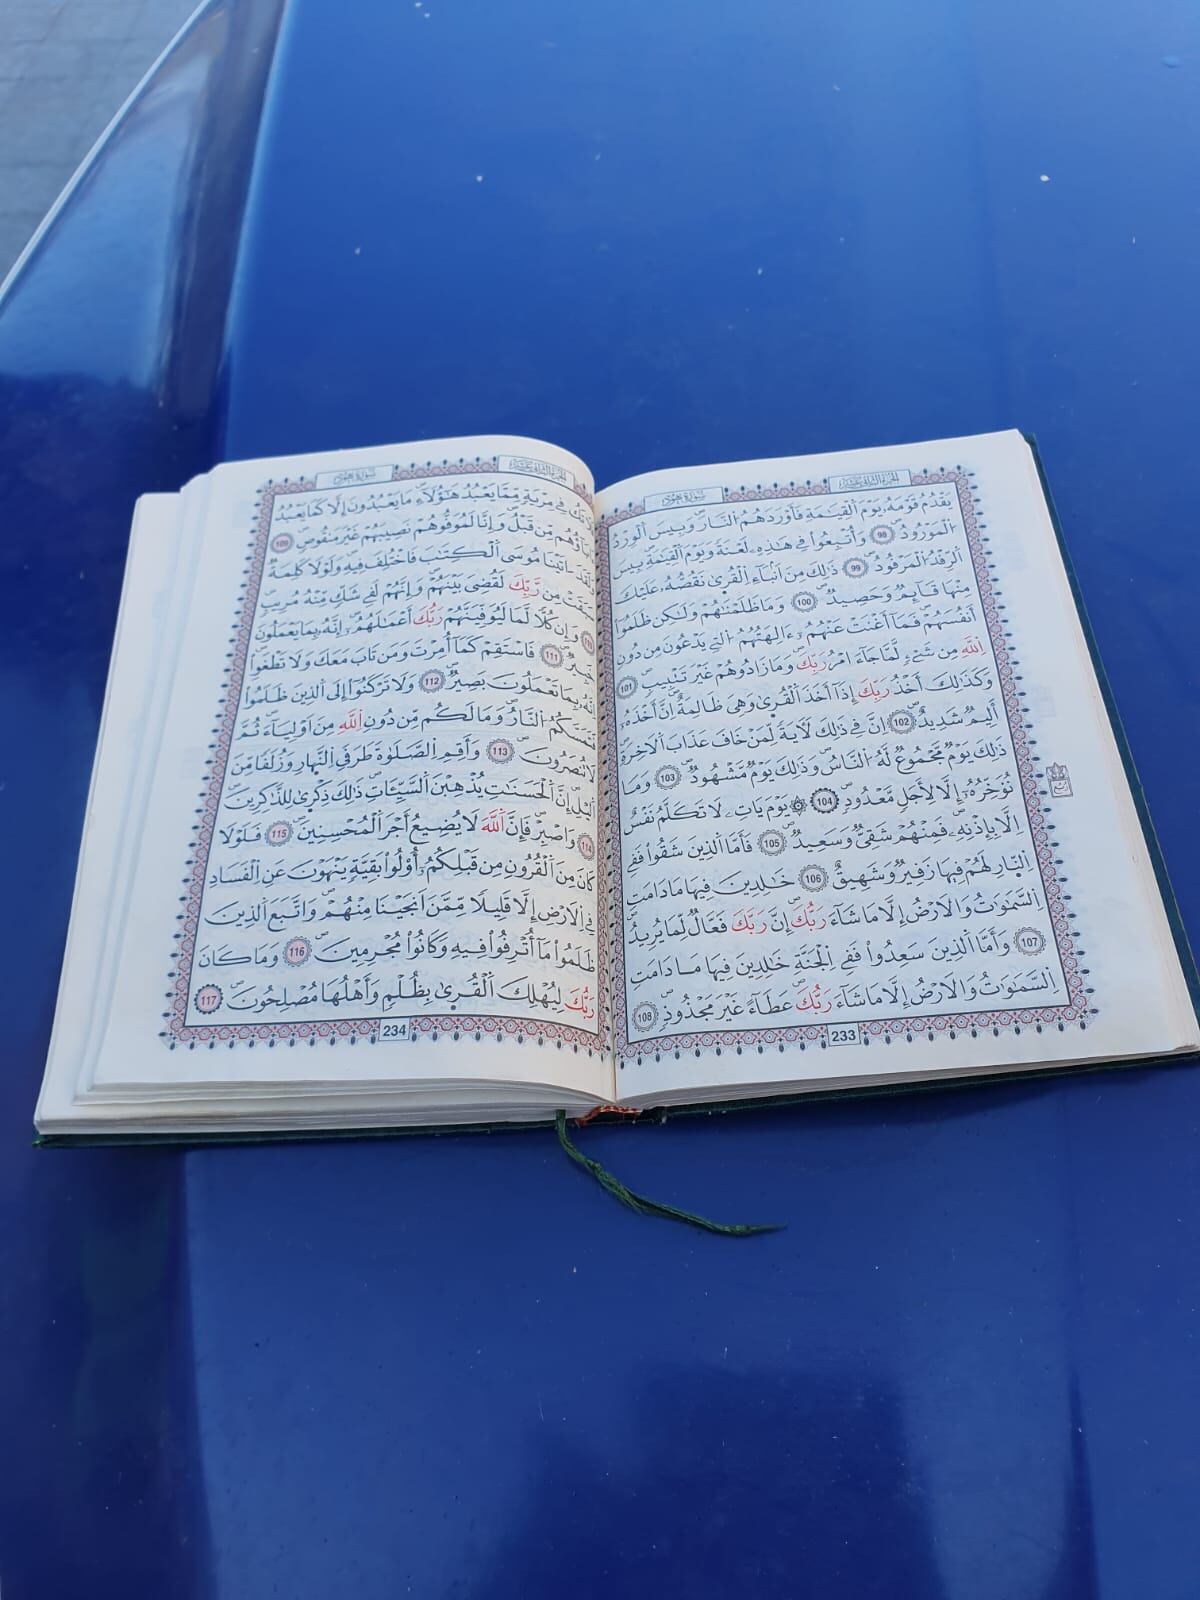 سورة هود
الجزء الثاني عشر
يَقْدُمُ قَوْمَهُۥ يَوْمَ اَ۬لْقِيَٰمَةِ فَأَوْرَدَهُمُ اُ۬لنَّارَۖ وَبِيسَ اَ۬لْوِرْدُ
اُ۬لْمَوْرُودُۖ 98 وَأُتْبِعُواْ فِي هَٰذِهِۦ لَعْنَةٗ وَيَوْمَ اَ۬لْقِيَٰمَةِۖ بِيسَ
اَ۬لرِّفْدُ اُ۬لْمَرْفُودُۖ 99 ذَٰلِكَ مِنَ اَنۢبَآءِ اِ۬لْقُر۪ىٰ نَقُصُّهُۥ عَلَيْكَ
مِنْهَا قَآئِمٞ وَحَصِيدٞۖ 100 وَمَا ظَلَمْنَٰهُمْ وَلَٰكِن ظَلَمُوٓاْ
أَنفُسَهُمْۖ فَمَآ أَغْنَتْ عَنْهُمُۥٓ ءَالِهَتُهُمُ اُ۬لتِي يَدْعُونَ مِن دُونِ
اِ۬للَّهِ مِن شَےْءٖ لَّمَّا جَآءَ امْرُ رَبِّكَۖ وَمَا زَادُوهُمْ غَيْرَ تَتْبِيبٖۖ 101
وَكَذَٰلِكَ أَخْذُ رَبِّكَ إِذَآ أَخَذَ اَ۬لْقُر۪ىٰ وَهِيَ ظَٰلِمَةٌۖ اِنَّ أَخْذَهُۥٓ
أَلِيمٞ شَدِيدٌۖ 102 اِنَّ فِي ذَٰلِكَ لَأٓيَةٗ لِّمَنْ خَافَ عَذَابَ اَ۬لَاخِرَةِۖ
ذَٰلِكَ يَوْمٞ مَّجْمُوعٞ لَّهُ اُ۬لنَّاسُ وَذَٰلِكَ يَوْمٞ مَّشْهُودٞۖ 103 وَمَا
نُؤَخِّرُهُۥٓ إِلَّا لِأَجَلٖ مَّعْدُودٖۖ 104 ۞ يَوْمَ يَاتِۦ لَا تَكَلَّمُ نَفْسٌ
اِلَّا بِإِذْنِهِۦۖ فَمِنْهُمْ شَقِيّٞ وَسَعِيدٞۖ 105 فَأَمَّا اَ۬لذِينَ شَقُواْ فَفِے
اِ۬لنّ۪ارِ لَهُمْ فِيهَا زَفِيرٞ وَشَهِيقٌ 106 خَٰلِدِينَ فِيهَا مَا دَامَتِ
اِ۬لسَّمَٰوَٰتُ وَالَارْضُ إِلَّا مَا شَآءَ رَبُّكَۖ إِنَّ رَبَّكَ فَعَّالٞ لِّمَا يُرِيدُۖ
107 وَأَمَّا اَ۬لذِينَ سَعِدُواْ فَفِے اِ۬لْجَنَّةِ خَٰلِدِينَ فِيهَا مَا دَامَتِ
اِ۬لسَّمَٰوَٰتُ وَالَارْضُ إِلَّا مَا شَآءَ رَبُّكَۖ عَطَآءً غَيْرَ مَجْذُوذٖۖ 108
233
سورة هود
الجزء الثاني عشر
تَكُ فِي مِرْيَةٖ مِّمَّا يَعْبُدُ هَٰٓؤُلَآءِۖ مَا يَعْبُدُونَ إِلَّا كَمَا يَعْبُدُ
ءَابَآؤُهُم مِّن قَبْلُۖ وَإِنَّا لَمُوَفُّوهُمْ نَصِيبَهُمْ غَيْرَ مَنقُوصٖۖ 109
وَلَقَدَ اٰتَيْنَا مُوسَى اَ۬لْكِتَٰبَ فَاخْتُلِفَ فِيهِۖ وَلَوْلَا كَلِمَةٞ
سَبَقَتْ مِن رَّبِّكَ لَقُضِيَ بَيْنَهُمْۖ وَإِنَّهُمْ لَفِے شَكّٖ مِّنْهُ مُرِيبٖۖ
110 وَإِن كُلّٗا لَمَا لَيُوَفِّيَنَّهُمْ رَبُّكَ أَعْمَٰلَهُمُۥٓۖ إِنَّهُۥ بِمَا يَعْمَلُونَ
خَبِيرٞۖ 111 فَاسْتَقِمْ كَمَآ أُمِرْتَ وَمَن تَابَ مَعَكَ وَلَا تَطْغَوِاْۖ
اِنَّهُۥ بِمَا تَعْمَلُونَ بَصِيرٞۖ 112 وَلَا تَرْكَنُوٓاْ إِلَى اَ۬لذِينَ ظَلَمُواْ
فَتَمَسَّكُمُ اُ۬لنَّارُۖ وَمَا لَكُم مِّن دُونِ اِ۬للَّهِ مِنَ اَوْلِيَآءَۖ ثُمَّ
لَا تُنصَرُونَۖ 113 وَأَقِمِ اِ۬لصَّلَوٰةَ طَرَفَيِ اِ۬لنَّه۪ارِ وَزُلَفٗا مِّنَ
اَ۬ليْلِۖ إِنَّ اَ۬لْحَسَنَٰتِ يُذْهِبْنَ اَ۬لسَّيِّـَٔاتِۖ ذَٰلِكَ ذِكْر۪ىٰ لِلذَّٰكِرِينَۖ
114 وَاصْبِرْ فَإِنَّ اَ۬للَّهَ لَا يُضِيعُ أَجْرَ اَ۬لْمُحْسِنِينَۖ 115 فَلَوْلَا
كَانَ مِنَ اَ۬لْقُرُونِ مِن قَبْلِكُمُۥٓ أُوْلُواْ بَقِيَّةٖ يَنْهَوْنَ عَنِ اِ۬لْفَسَادِ
فِي اِ۬لَارْضِ إِلَّا قَلِيلٗا مِّمَّنَ اَنجَيْنَا مِنْهُمْۖ وَاتَّبَعَ اَ۬لذِينَ
ظَلَمُواْ مَآ أُتْرِفُواْ فِيهِ وَكَانُواْ مُجْرِمِينَۖ 116 وَمَا كَانَ
رَبُّكَ لِيُهْلِكَ اَ۬لْقُر۪ىٰ بِظُلْمٖ وَأَهْلُهَا مُصْلِحُونَۖ 117
234